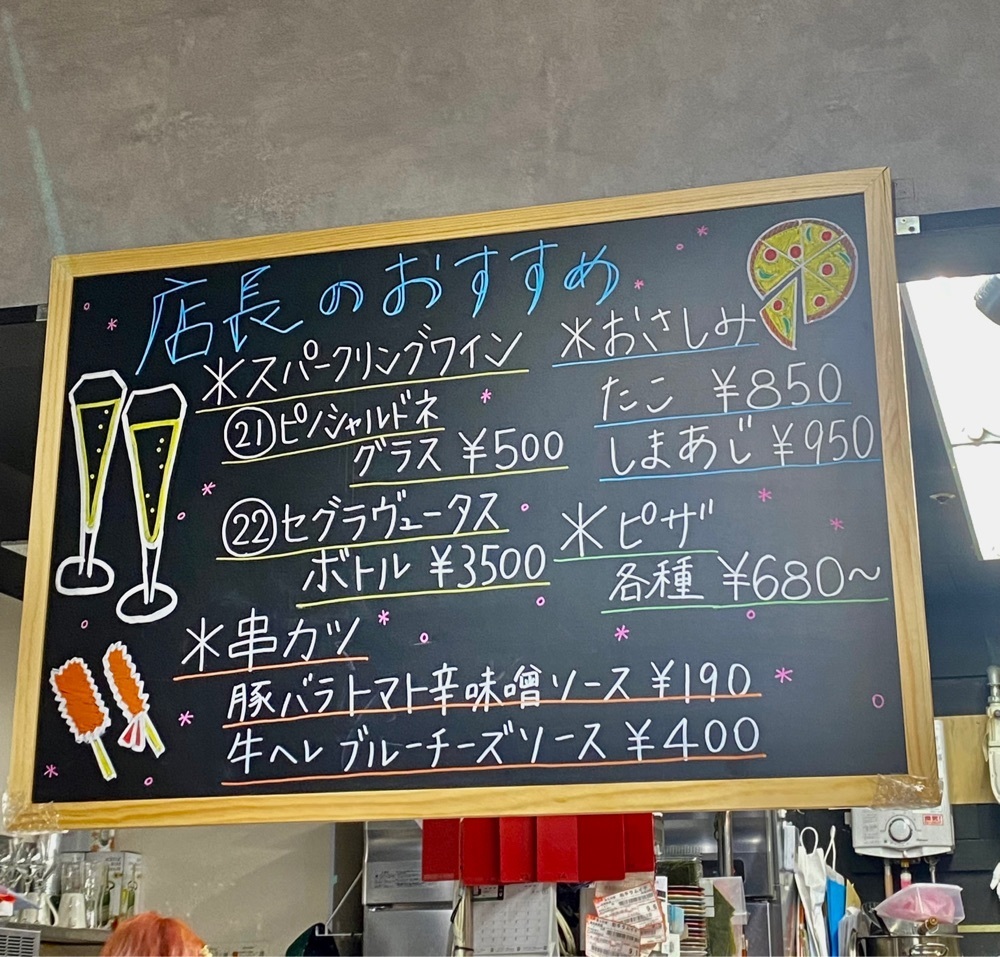 店長のおすすめ
*スパークリングワイン
㉑ピノシャルドネ
グラス ¥500
㉒セグラヴュータス
ボトル ¥3500
*おさしみ
たこ ¥850
しまあじ ¥950
*ピザ
各種 ¥680~
*串カツ
豚バラトマト辛味噌ソース ¥190
牛ヘレブルーチーズソース ¥400